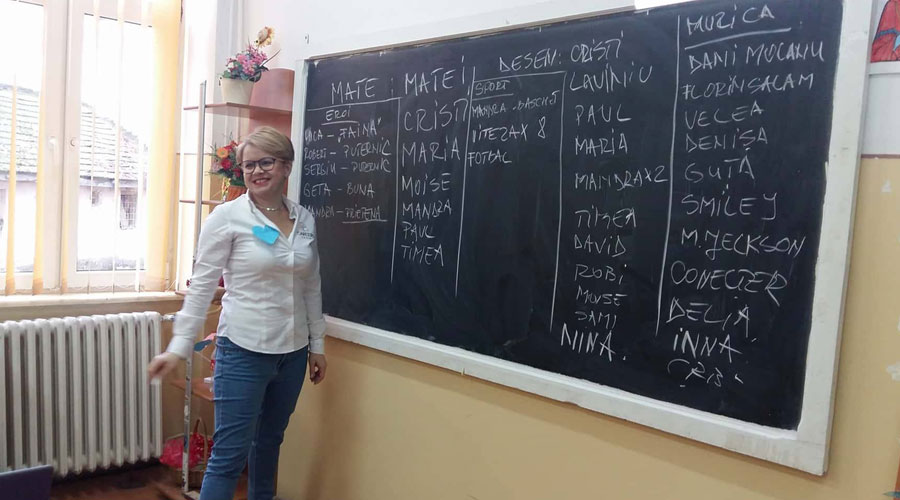 MATE : MATEI
EROI
RAICA - "FAINĂ"
ROBERT - PUTERNIC
SERGIU - PUTERNIC
GETA - BUNA
MANDRA - PRIETENA
CRISTI
MARIA
MOISE
MANDRA
PAUL
TIMEA
SPORT
MANDRA - BASCHET
VITEZA X 8
FOTBAL
DESEN: CRISTI
LAVINIU
PAUL
MARIA
MANDRAX2
TIMEA
DAVID
ROBI
MOISE
SAMI
NINA.
MUZICA
DANI MOCANU
FLORIN SALAM
VELEA
DENISA
GUTĂ
SMILEY
M. JECKSON
CONECTER
DELIA
INNA